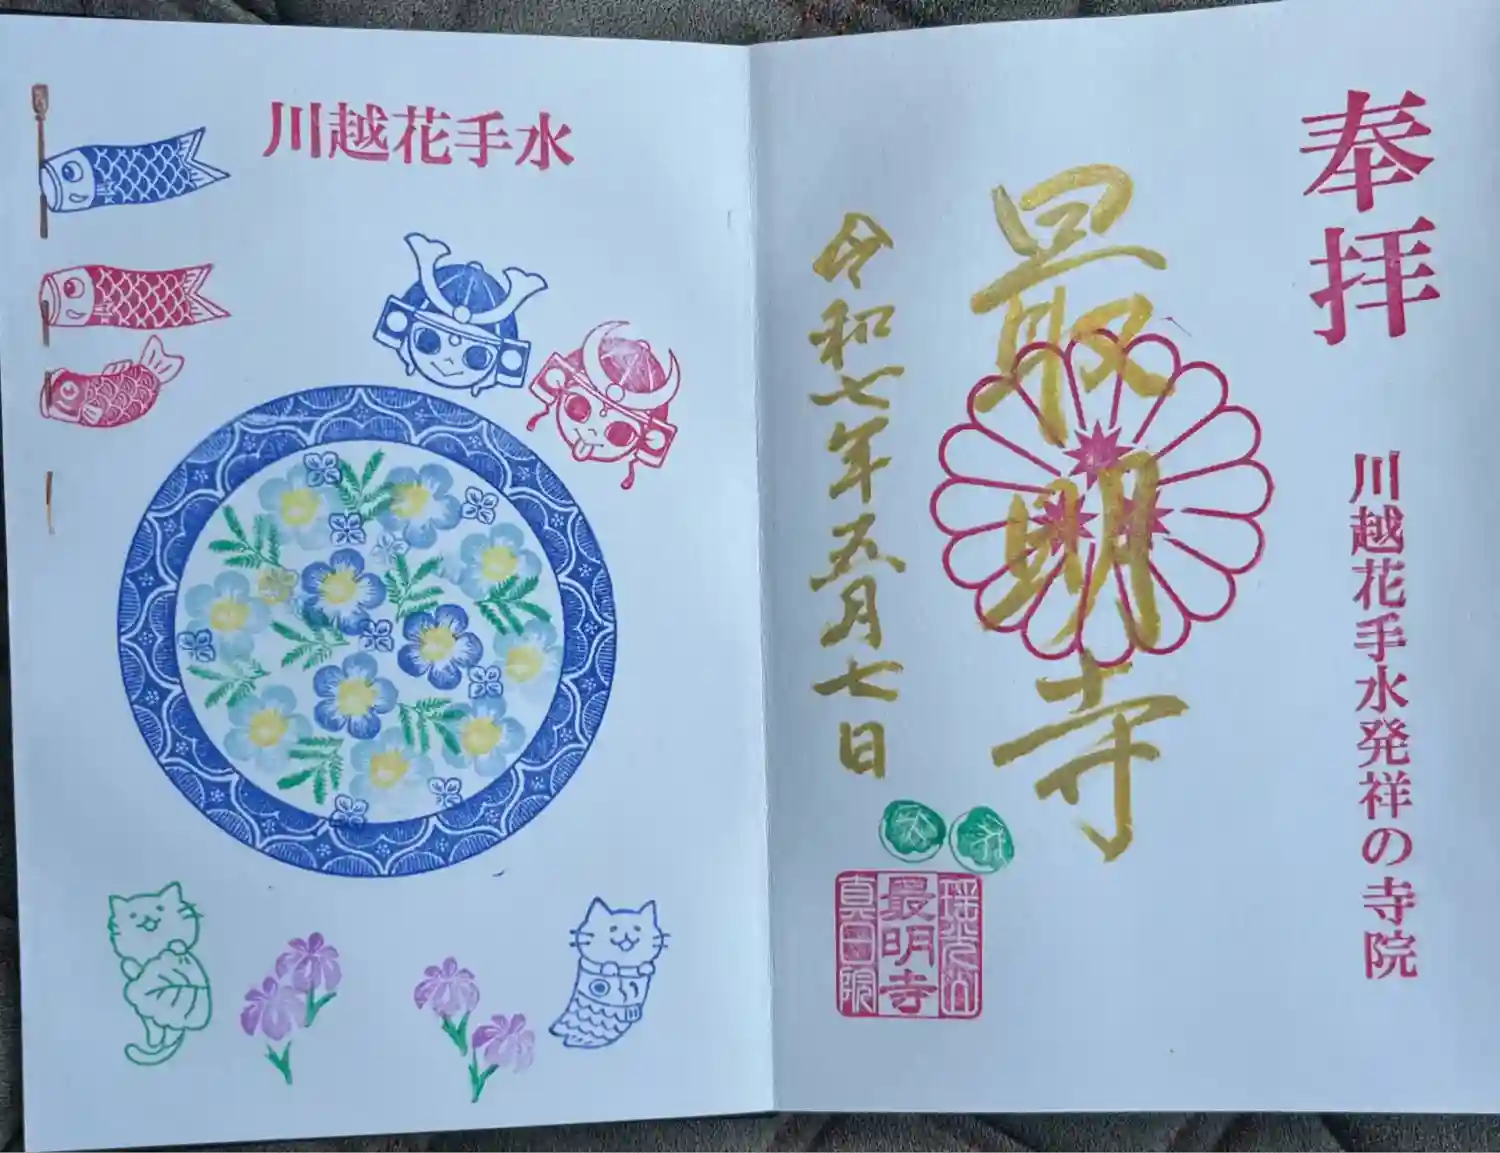 奉拝
川越花手水発祥の寺院
最明寺
令和七年五月七日
瑶光山
最明寺
真田院
川越花手水